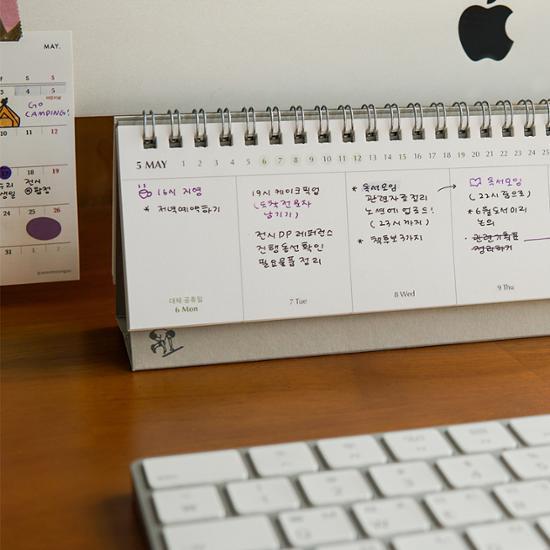 MAY.
GO
CAMPING!
전시
5 MAY 1 2 3 4 5 6 7 8 9 10 11 12 13 14 15 16 17 18 19 20 21 22 23 24 25
16시 지영
* 저녁예약하기
대체 공휴일
6 Mon
19시 케이크픽업
(도착전 문자
남기기)
· 전시DP 레퍼런스
진행동선확인
필요물품 정리
7 Tue
* 독서모임
관련자료정리
노션에 업로드!
(23시까지)
* 책투보3가지
8 Wed
독서모임
(22시 줌으로)
* 6월도서미리
논의
· 관련기획표
정리하기
9 Thu
10 11 12
17 18 19
24 25 26
31